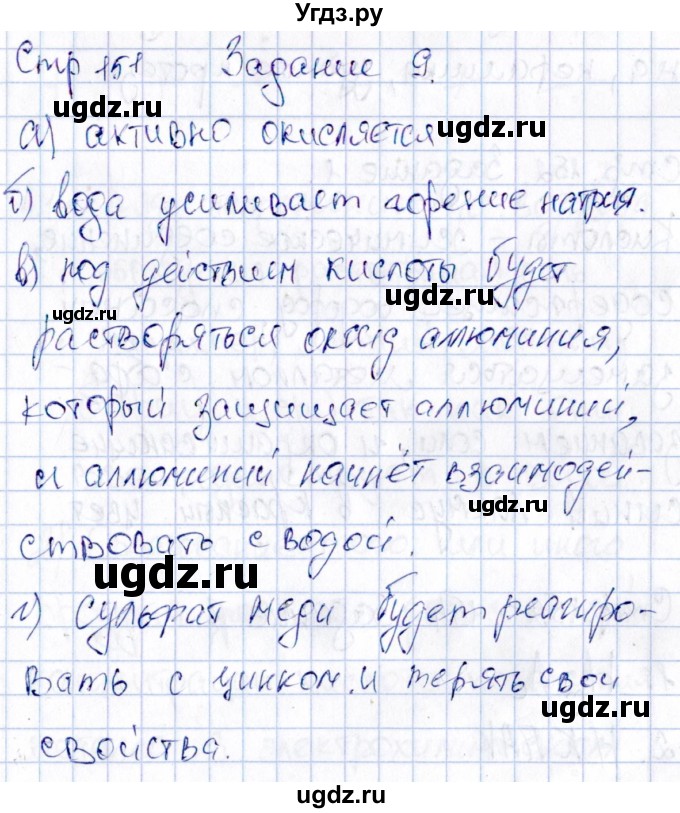 Угдз.ру
Стр 151 Задание 9.
ugdz.ru
а) активно окисляется
ugdz.ru
б) вода усиливает горение натрия.
ugdz.ru
в) под действием кислоты будет
ugdz.ru
ugdz.ru
растворяться оксид аллюминия,
который защищает аллюминий,
ugdz.ru
и аллюминий начнёт взаимодей-
ugdz.ru
ствовать с водой.
ugdz.ru
г) Сульфат меди будет реагиро-
ugdz.ru
вать с цинком и терять свои
ugdz.ru
свойства.
ugdz.ru